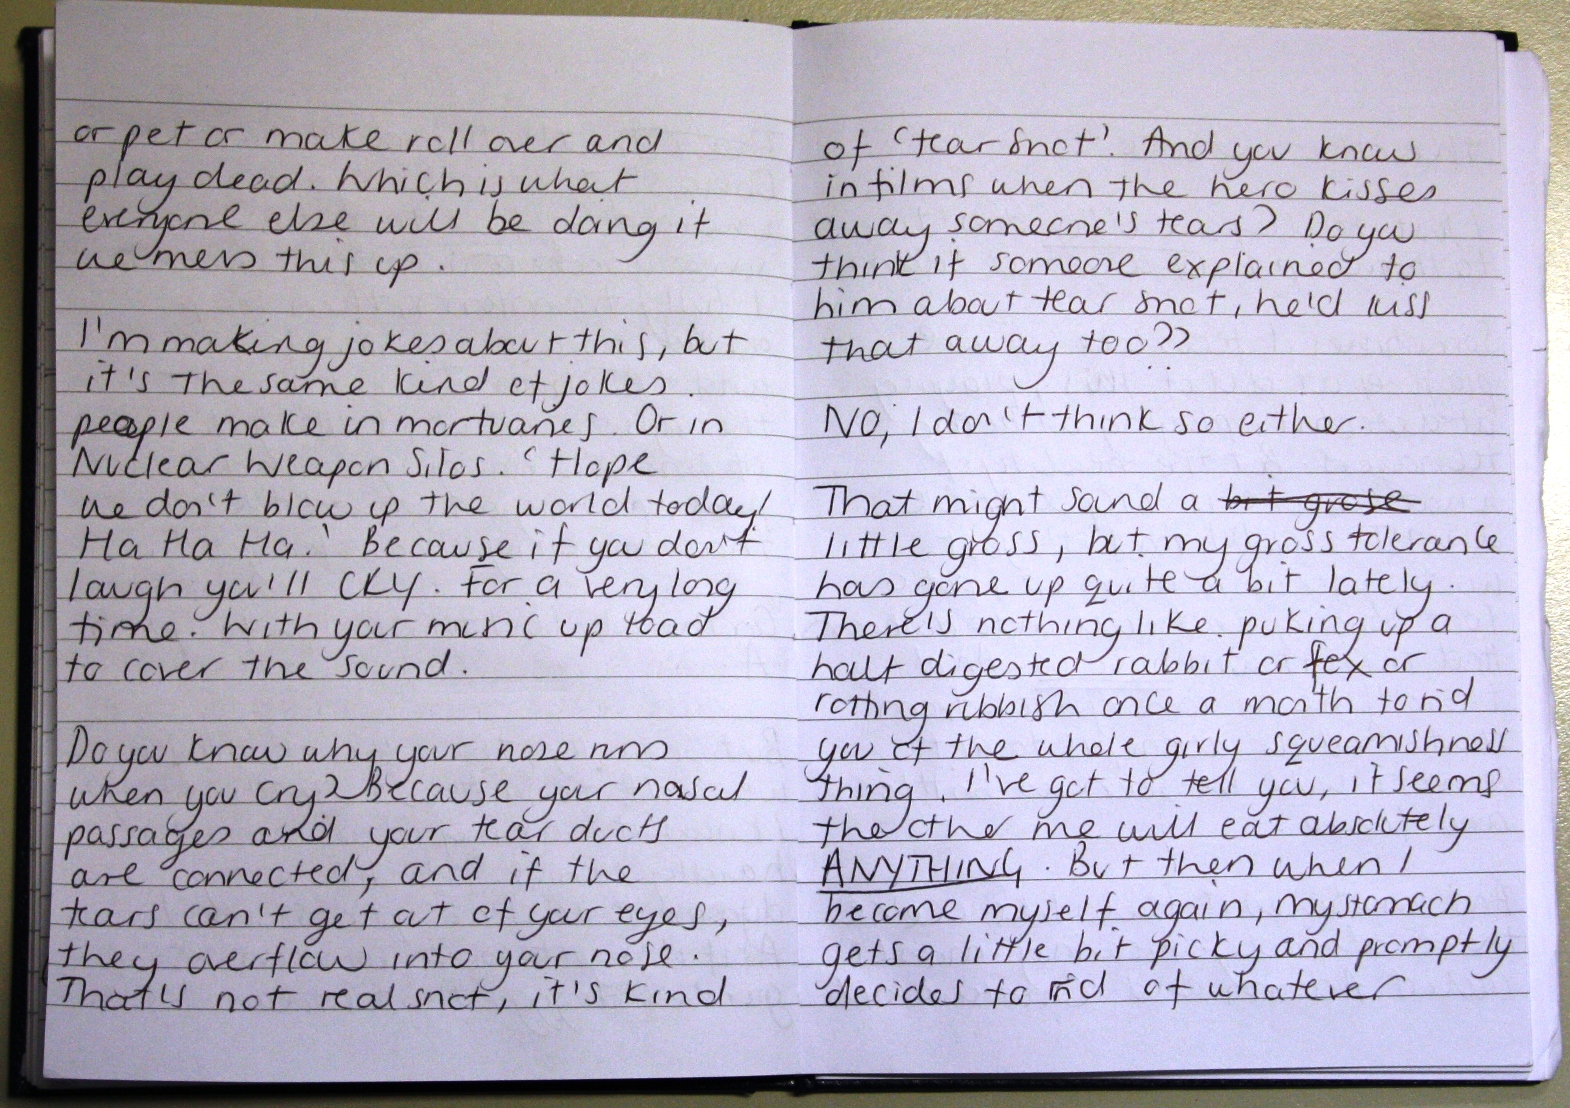 or pet or make roll over and
play dead. Which is what
everyone else will be doing if
we mess this up.
I'm making jokes about this, but
it's the same kind of jokes
people make in mortuaries. Or in
Nuclear Weapon Silos. 'Hope
we don't blow up the world today!
Ha Ha Ha.' Because if you don't
laugh you'll CRY. For a very long
time. With your music up load
to cover the sound.
Do you know why your nose runs
when you cry? Because your nasal
passages and your tear ducts
are connected, and if the
tears can't get out of your eyes,
they overflow into your nose.
That's not real snot, it's kind
of 'tear snot'. And you know
in films when the hero kisses
away someone's tears? Do you
think if someone explained to
him about tear snot, he'd kiss
that away too??
NO, I don't think so either.
That might sound a bit grose
little gross, but my gross tolerance
has gone up quite a bit lately.
There's nothing like puking up a
half digested rabbit or fox or
rotting rubbish once a month to rid
you of the whole girly squeamishness
thing. I've got to tell you, it seems
the other me will eat absolutely
ANYTHING. But then when I
become myself again, my stomach
gets a little bit picky and promptly
decides to rid of whatever